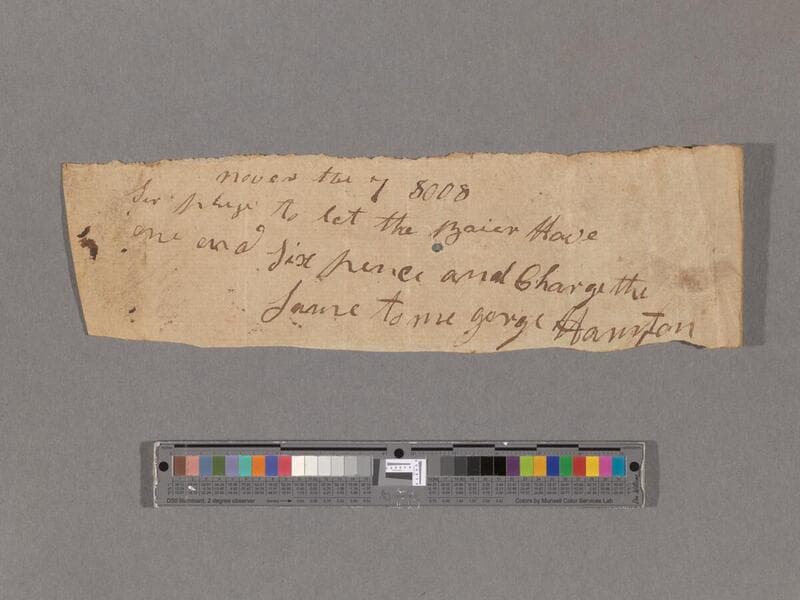 nover the 7 8008
Sir plege to let the Baier Have
one and six pence and Charge the
same to me gorge Hampton
D50 Illuminant, 2 degree observer
Colors by Munsell Color Services Lab